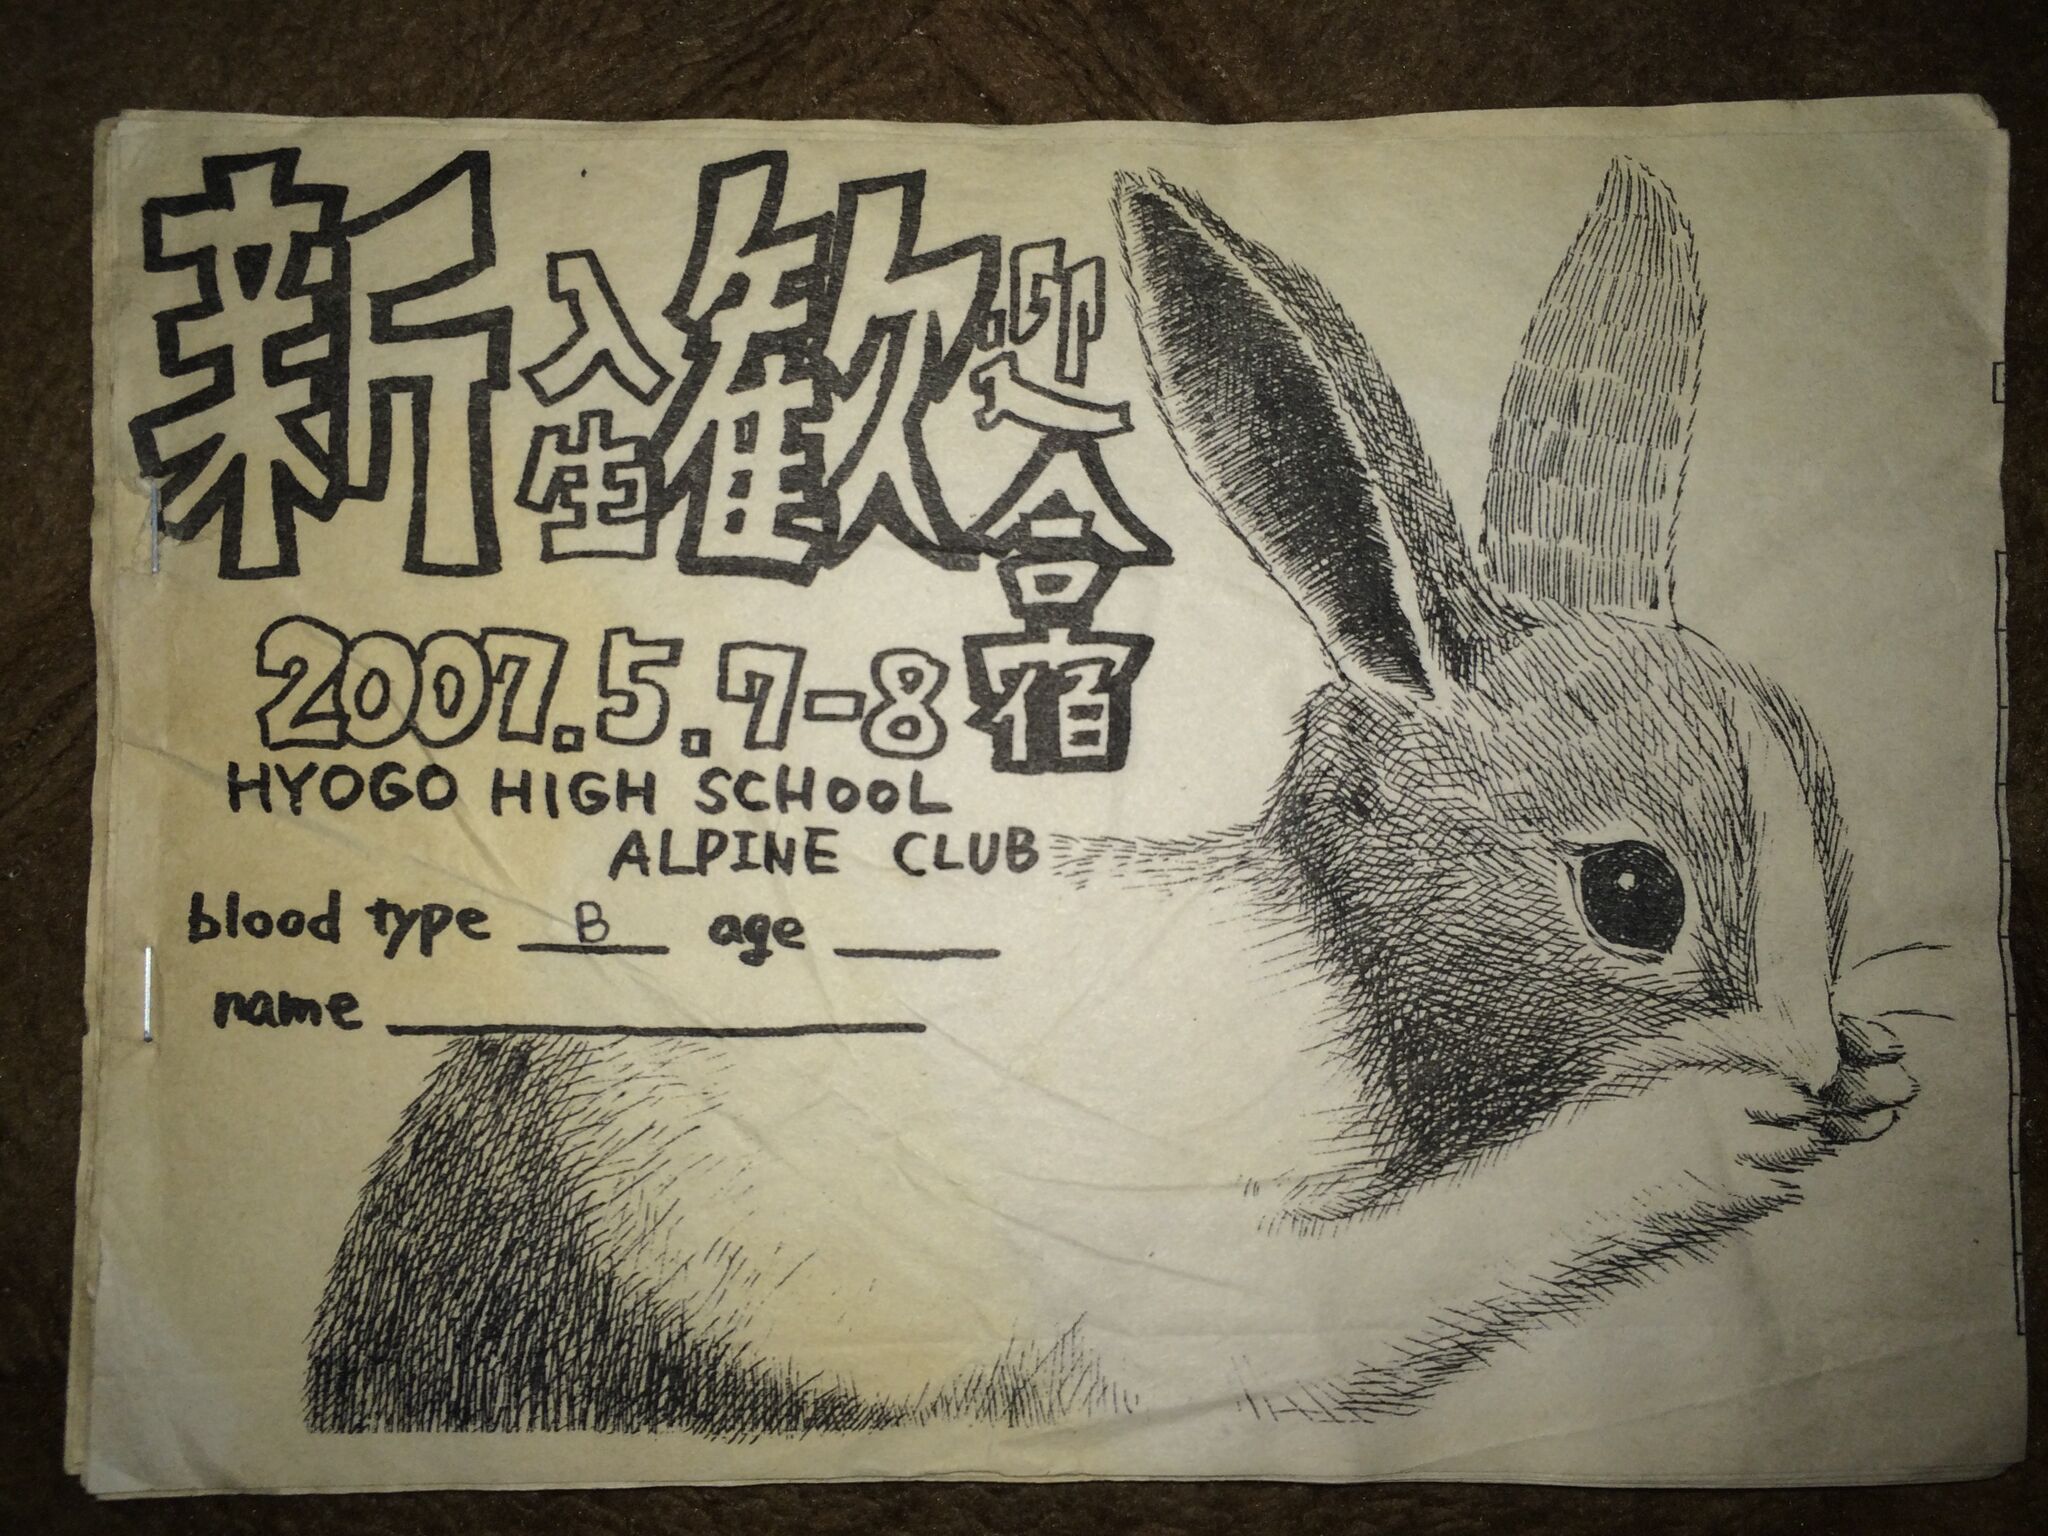 新入生歓迎合宿
2007.5.7-8
HYOGO HIGH SCHOOL
ALPINE CLUB
blood type B age
name